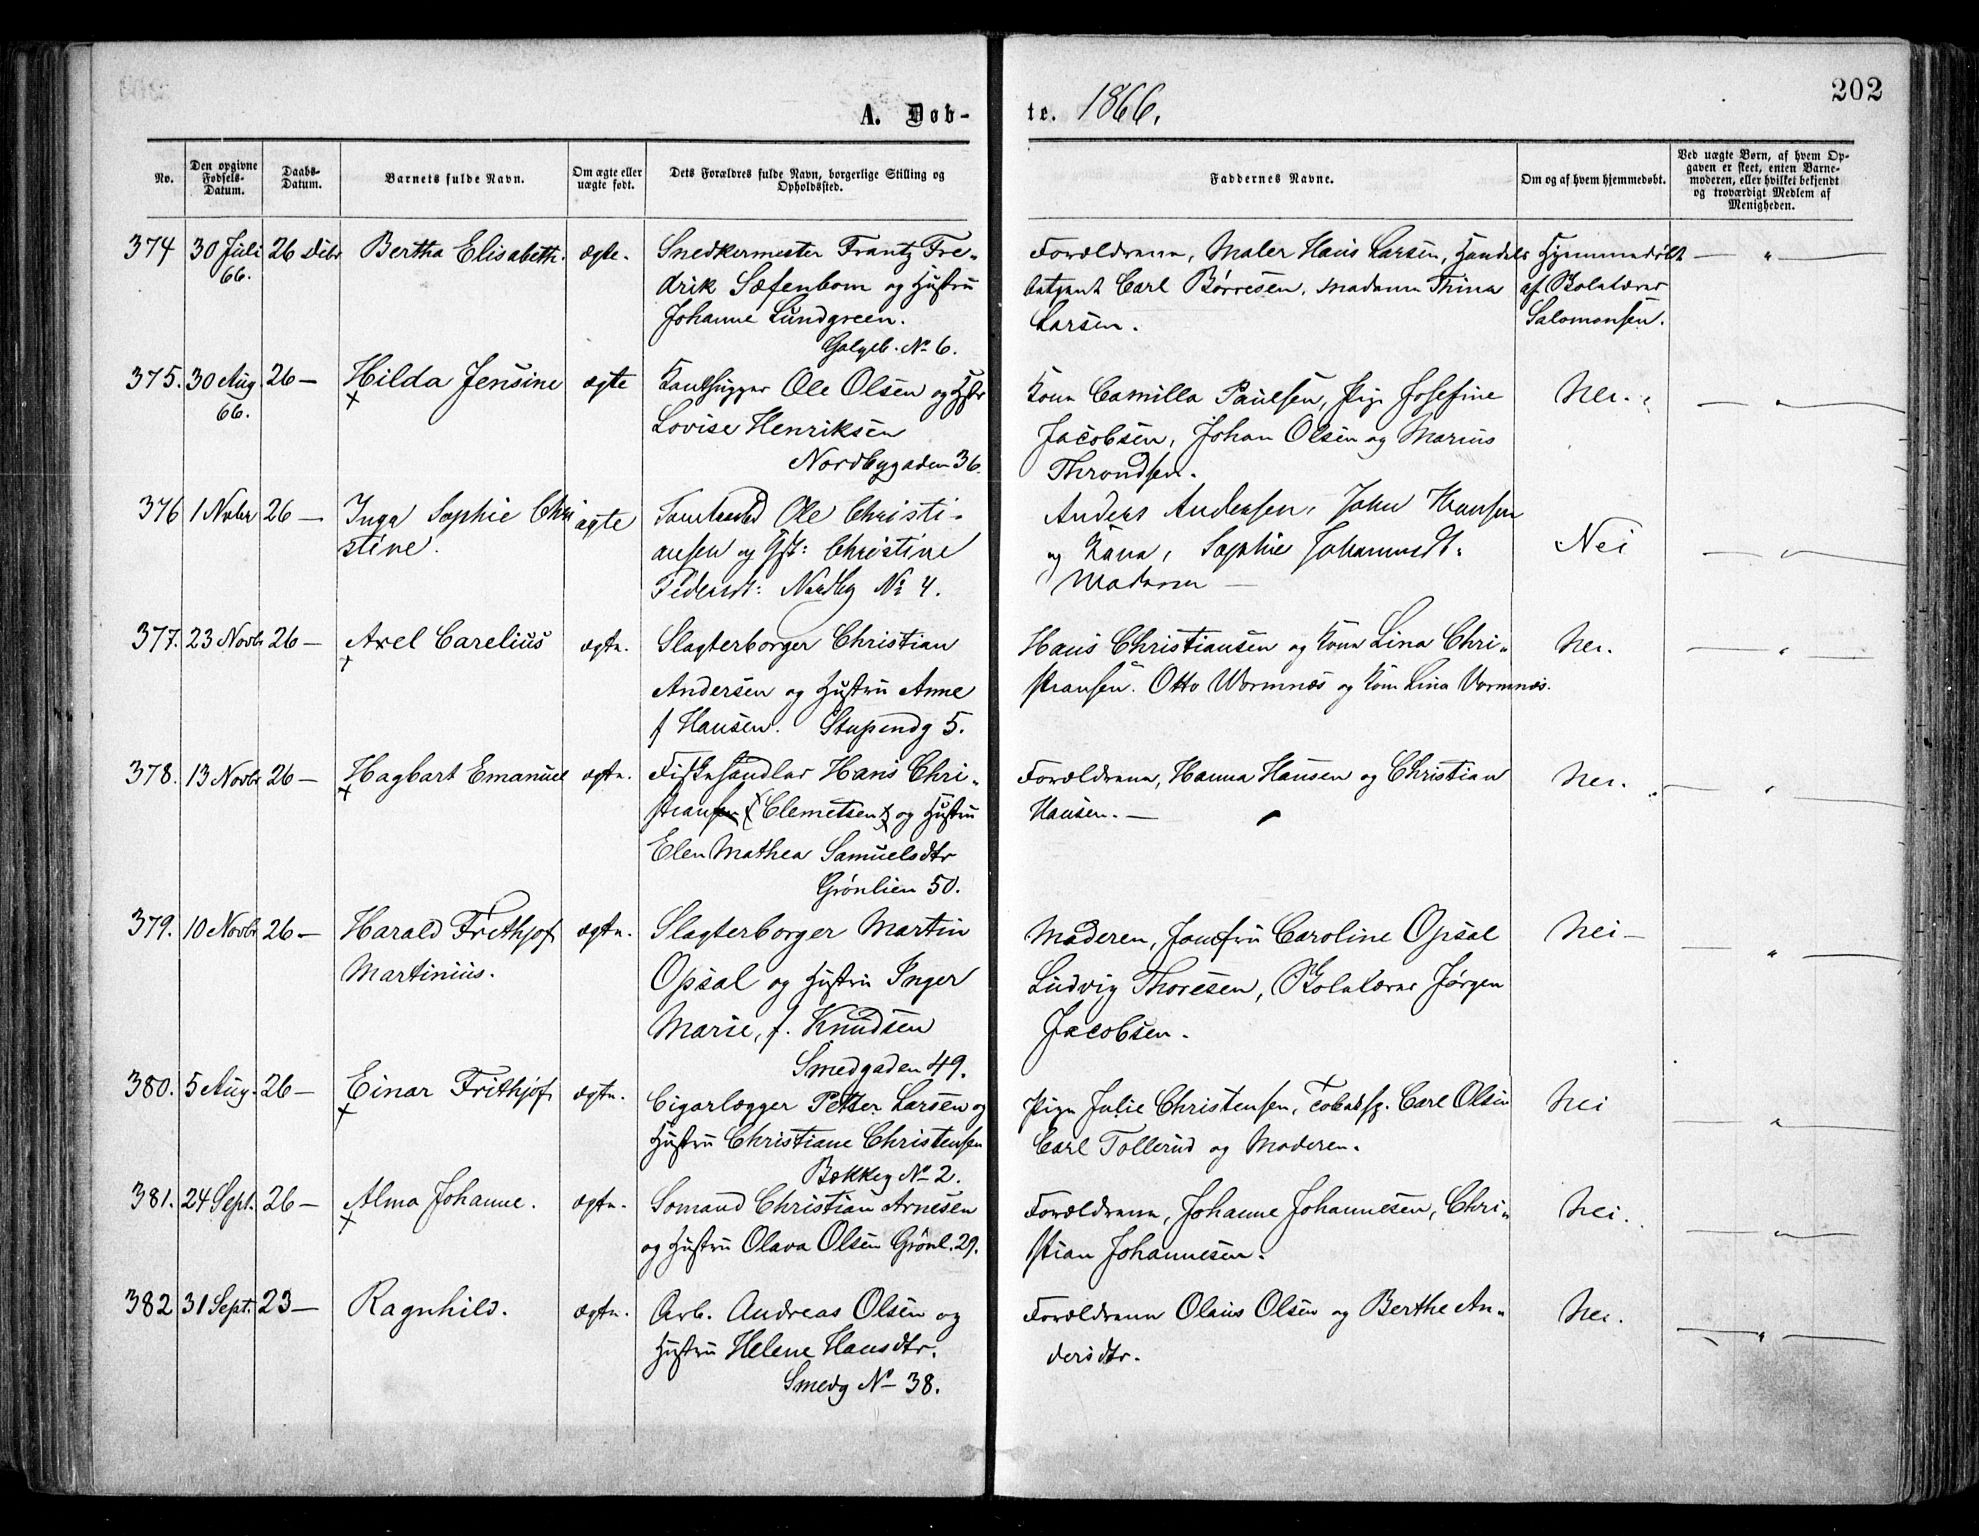 202
A. Døb-
te. 1866.
No.
Den opgivne
Fødsels-
Datum.
Daabs-
Datum.
Barnets fulde Navn.
Om ægte eller
uægte født.
Dets Forældres fulde Navn, borgerlige Stilling og
Opholdssted.
Faddernes Navne.
Om og af hvem hjemmedøbt.
Ved uægte Børn, af hvem Op-
gaven er skeet, enten Barne-
moderen, eller hvilket bekjendt
og troværdigt Medlem af
Menigheden.
374 30 Juli 26 Dcbr Bertha Elisabeth. ægte. Snedkermester Frantz Fre- Forældrene, Maler Hans Larsen, Handels Hjemmedøbt — " —
66. drik Sæfenbom og Hustru betjent Carl Børresen, Madame Thina af Skolelærer
Johanne Lundgreen. Larsen. Salomonsen.
Galgeb. No 6.
375. 30 Aug. 26 — Hilda Jensine ægte Ole Olsen og Hstr Kone Camilla Paulsen, Pige Josefine Nei. — " —
66. x Lovise Henriksen Jacobsen, Johan Olsen og Marius
Nordbygaden 36. Throndsen.
376 1 Novbr 26 — Inga Sophie Chri ægte Ole Christi- Anders Andersen, John Hansen Nei — " —
stine. ansen og Hst: Christine og Kone, Sophie Johannesdt:
Pedersdt: Nordbg No 4. Madame —
377. 23 Novbr 26 — Axel Carelius ægte. Slagterborger Christian Hans Christiansen og Kone Lina Chri- Nei. — " —
x Andersen og Hustru Anne stiansen. Otto Wormnæs og Kone Lina Vormnæs.
f Hansen. Stupendg 5.
378. 13 Novbr 26 — Hagbart Emanuel ægte. Fiskehandler Hans Chri- Forældrene, Hanna Hansen og Christian Nei. — " —
x stiansen (Clemetsen) og Hustru Hansen. —
Elen Mathea Samuelsdtr
Grønlien 50.
379. 10 Novbr 26 — Harald Frithjof ægte. Slagterborger Martin Moderen, Jomfru Caroline Opsal Nei — — " —
Martinius. Opsal og Hustru Inger Ludvig Thoresen, Skolelærer Jørgen
Marie, f. Knudsen Jacobsen.
Smedgaden 49.
380. 5 Aug. 26 — Einar Frithjof ægte. Cigarlægger Petter Larsen og Pige Julie Christensen, Tobaksp. Carl Olsen Nei — " —
x Hustru Christiane Christensen Carl Tollerud og Moderen.
Bækkeg No 2.
381. 24 Sept. 26 — Alma Johanne. ægte. Sømand Christian Arnesen Forældrene, Johanne Johannesen, Chri- Nei. — " —
x og Hustru Olava Olsen Grønl. 29. stian Johannesen.
382 31 Sept. 23 — Ragnhild. ægte. Arb. Andreas Olsen og Forældrene Olaus Olsen og Berthe An- Nei. — " —
Hustru Helene Hansdtr. dersdtr.
Smedg No 38.